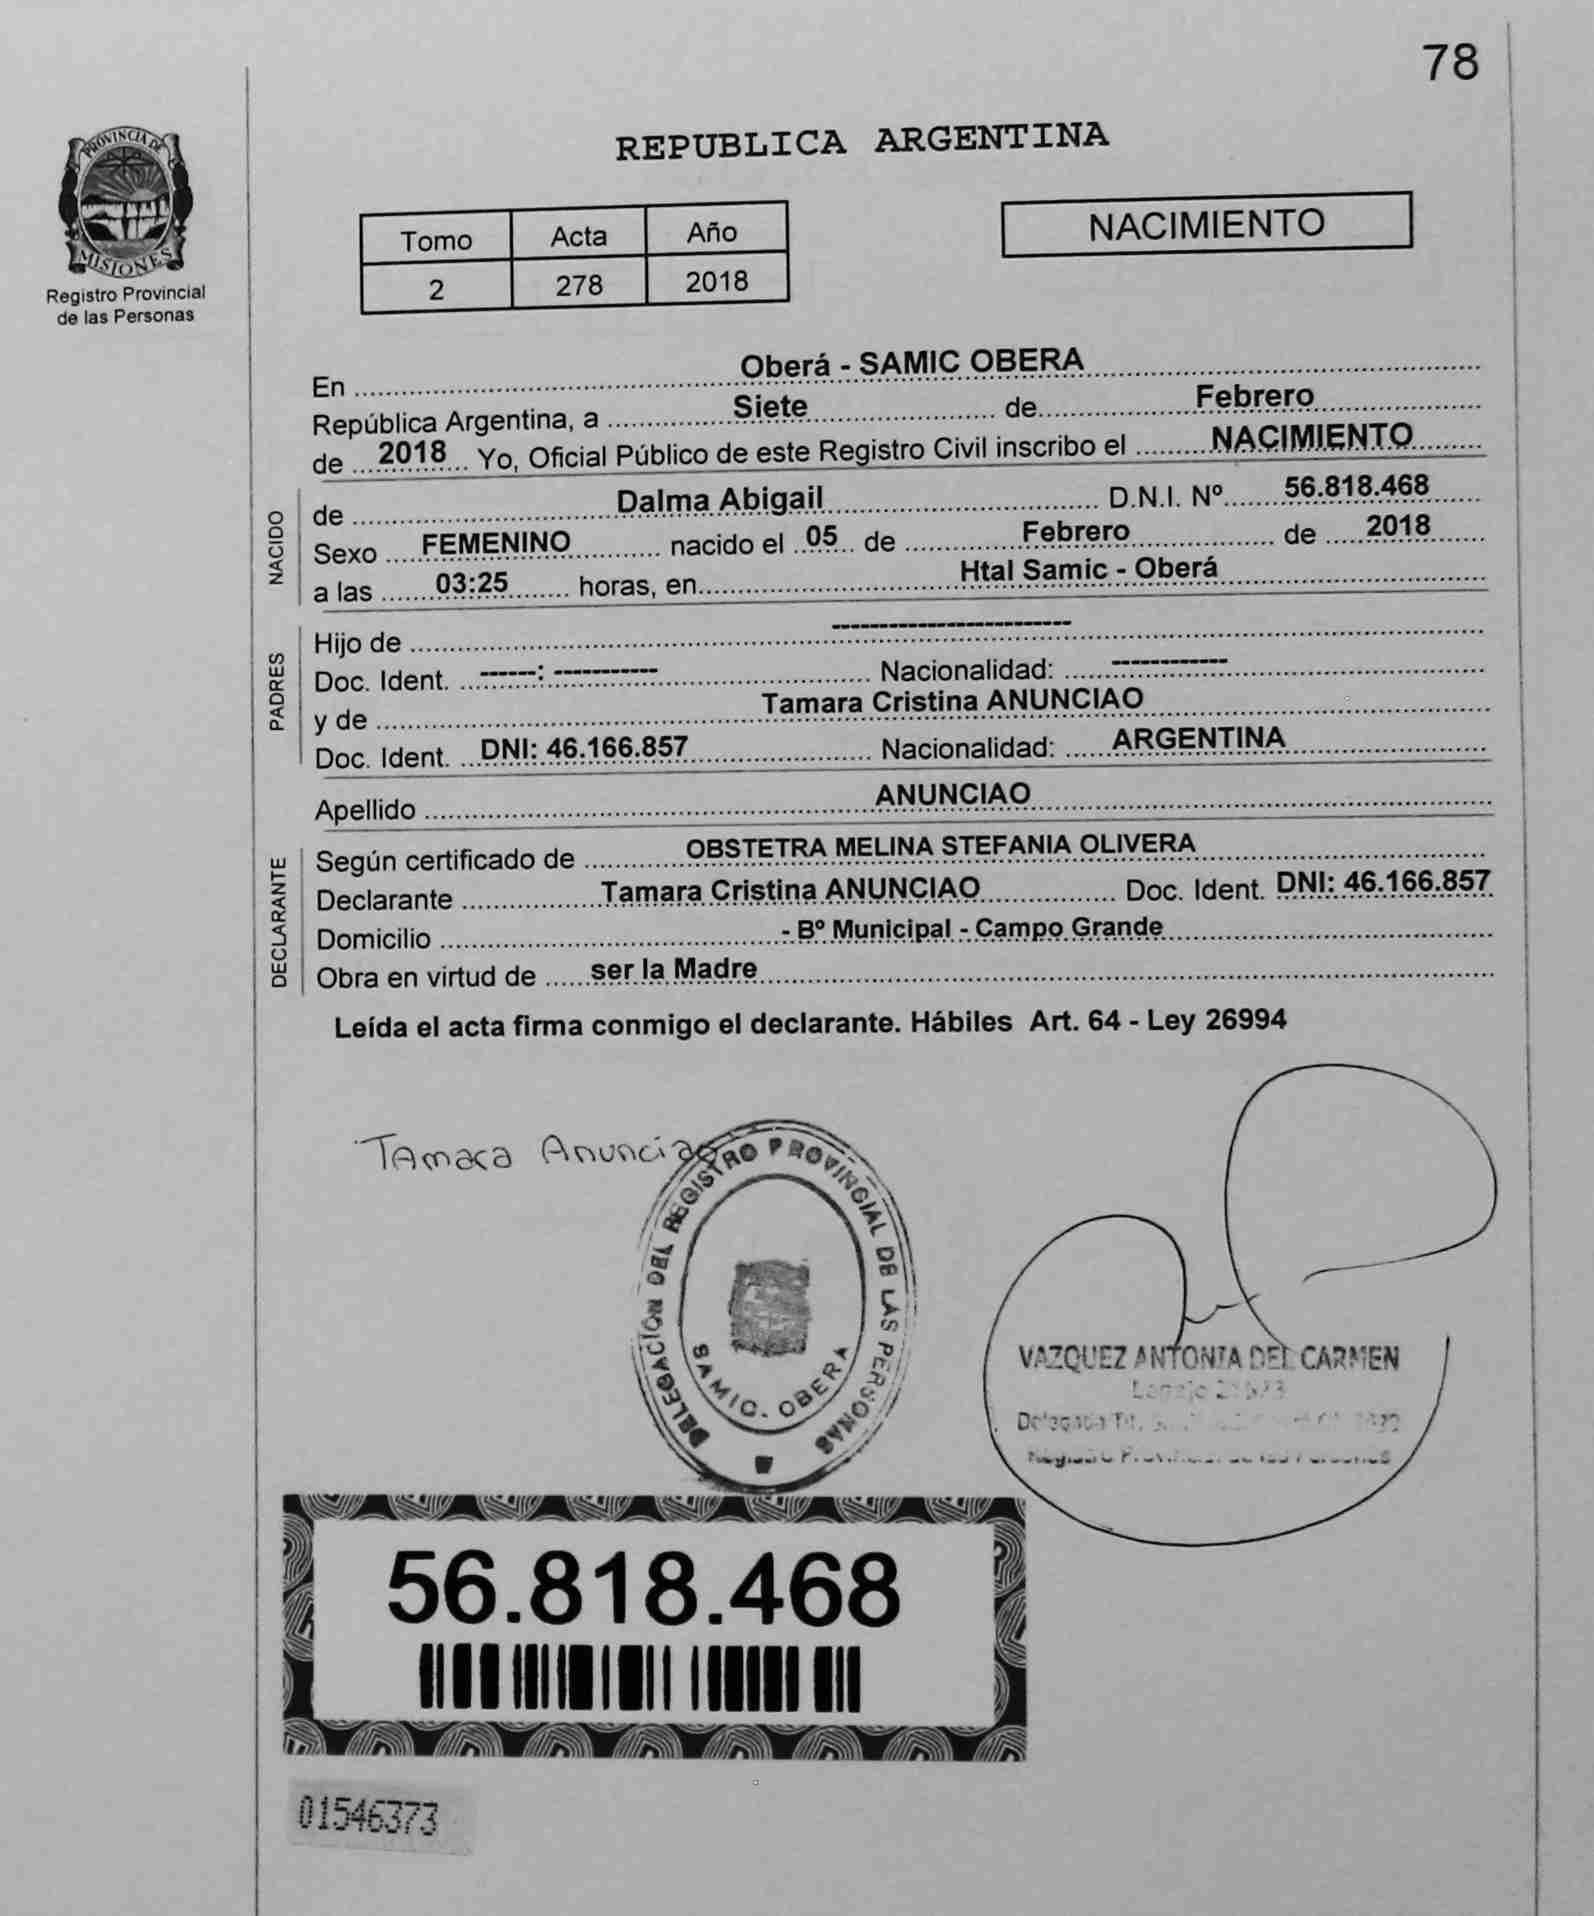 78
PROVINCIA DE
MISIONES
Registro Provincial
de las Personas
REPUBLICA ARGENTINA
Tomo Acta Año
2 278 2018
NACIMIENTO
En Oberá - SAMIC OBERA
República Argentina, a Siete de Febrero
de 2018 Yo, Oficial Público de este Registro Civil inscribo el NACIMIENTO
NACIDO
de Dalma Abigail D.N.I. Nº 56.818.468
Sexo FEMENINO nacido el 05 de Febrero de 2018
a las 03:25 horas, en Htal Samic - Oberá
PADRES
Hijo de -------------------------
Doc. Ident. ------: ----------- Nacionalidad: ------------
y de Tamara Cristina ANUNCIAO
Doc. Ident. DNI: 46.166.857 Nacionalidad: ARGENTINA
Apellido ANUNCIAO
DECLARANTE
Según certificado de OBSTETRA MELINA STEFANIA OLIVERA
Declarante Tamara Cristina ANUNCIAO Doc. Ident. DNI: 46.166.857
Domicilio - Bº Municipal - Campo Grande
Obra en virtud de ser la Madre
Leída el acta firma conmigo el declarante. Hábiles Art. 64 - Ley 26994
Tamara Anunciao
DELEGACION DEL REGISTRO PROVINCIAL DE LAS PERSONAS
SAMIC. OBERA
VAZQUEZ ANTONIA DEL CARMEN
Registro Provincial de las Personas
56.818.468
01546373